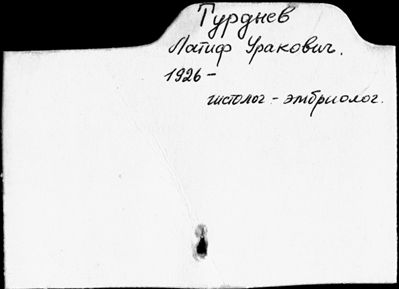 Турдиев
Латиф Уракович.
1926 –
гистолог. – эмбриолог.